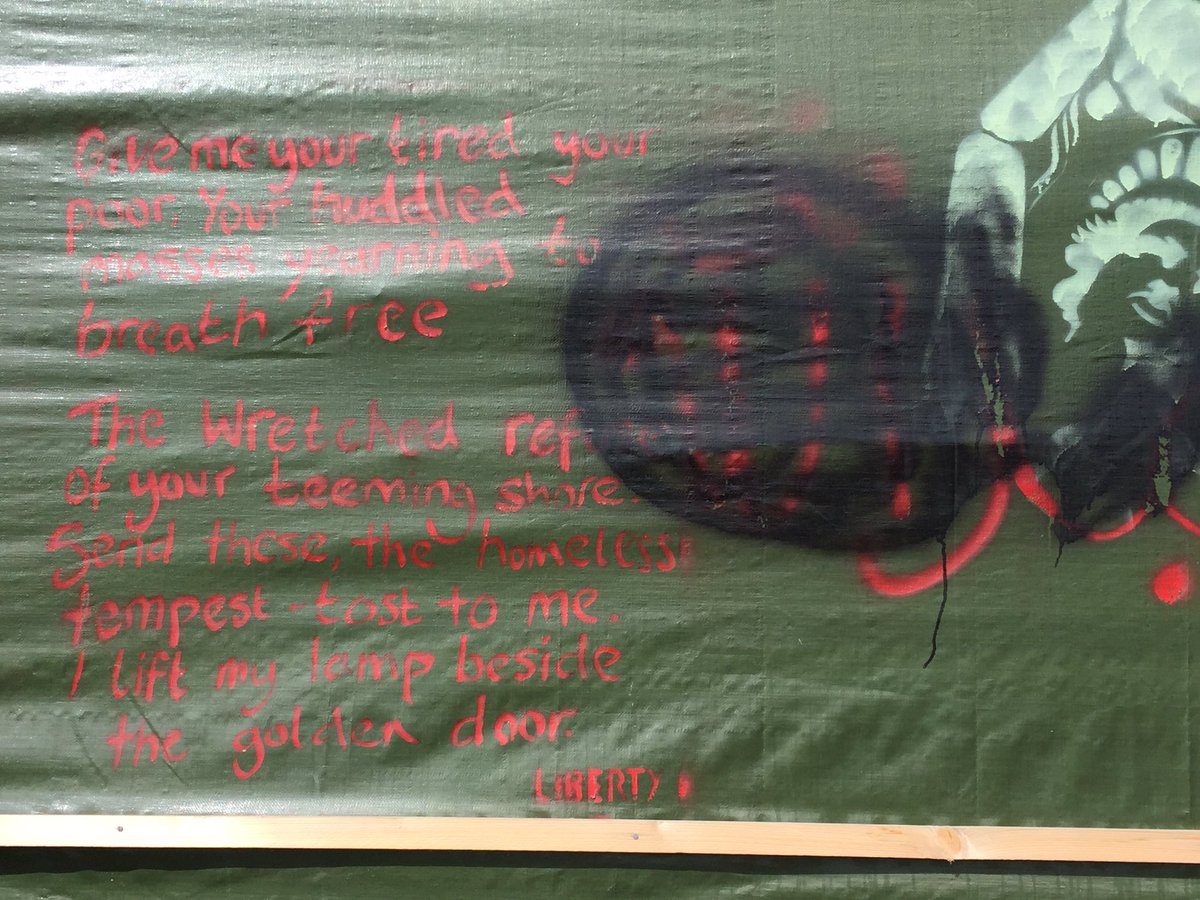 Give me your tired your
poor, Your huddled
masses yearning to
breath free
The Wretched
of your teeming shore.
Send these, the homeless
tempest-tost to me.
I lift my lamp beside
the golden door.
LIBERTY